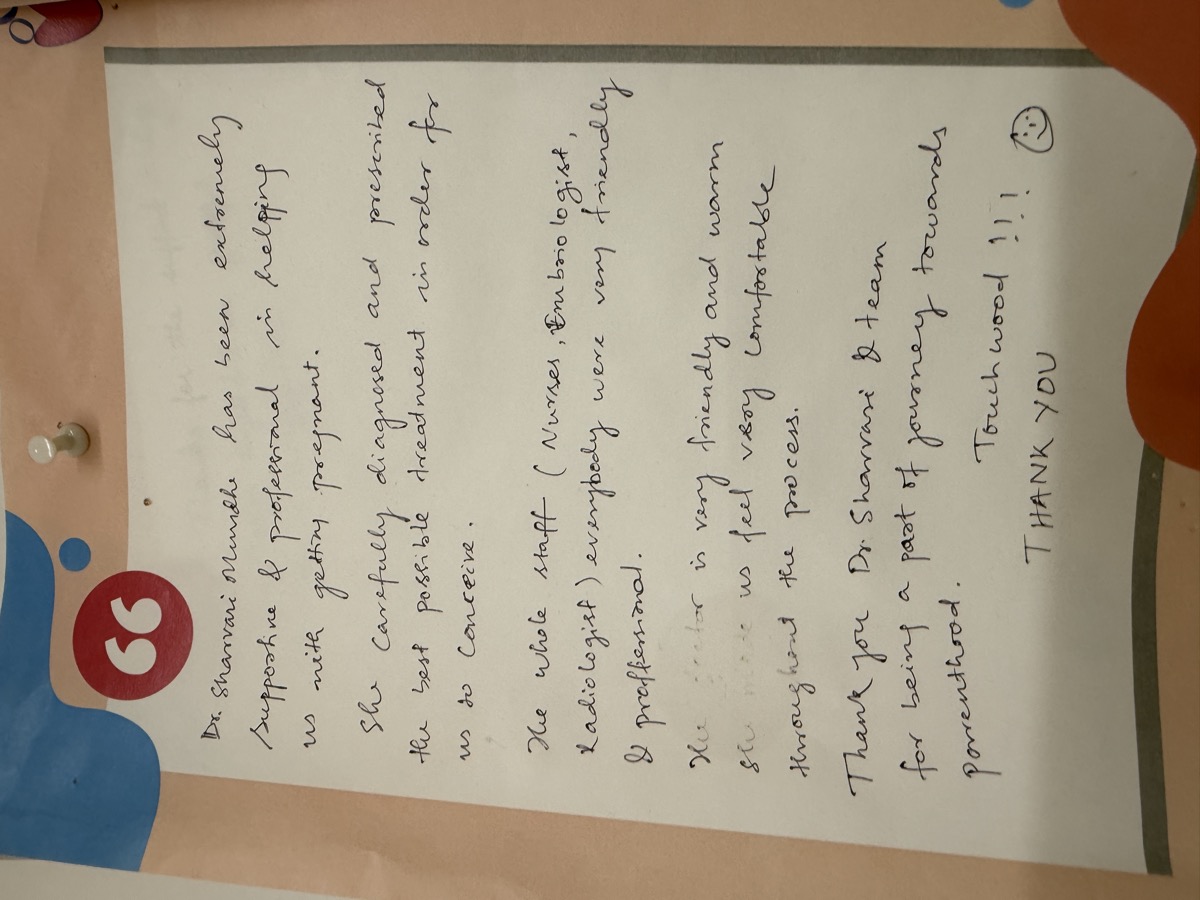 Dr. Sharvari Mundhe has been extremely
supportive & professional in helping
us with getting pregnant.
She Carefully diagnosed and prescribed
the best possible treatment in order for
us to Conceive.
The whole staff (Nurses, Embriologist,
Radiologist) everybody were very friendly
& proffessional.
The doctor is very friendly and warm
She made us feel very Comfortable
throughout the process.
Thank you Dr. Sharvari & team
for being a part of journey towards
parenthood.
Touchwood !!!
THANK YOU